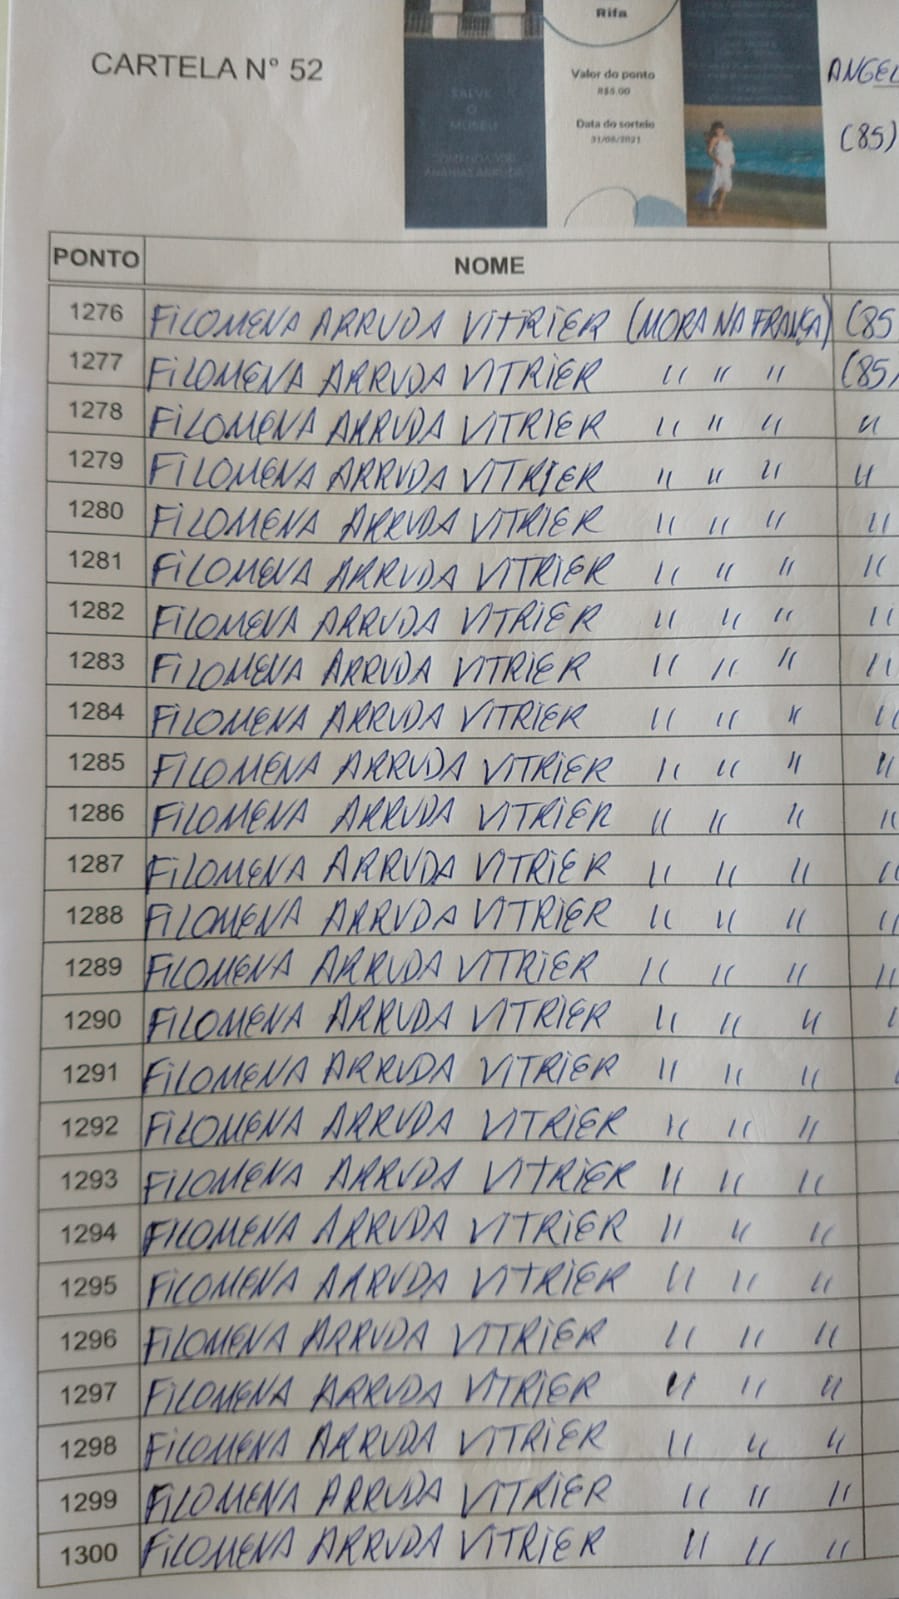 Rifa
CARTELA Nº 52
Valor do ponto
R$5.00
Data do sorteio
31/08/2021
SALVE
O
MUSEU
COMENDADOR
ANANIAS ARRUDA
ANGEL
(85)
PONTO NOME
1276 FILOMENA ARRUDA VITRIER (MORA NA FRANÇA) (85
1277 FILOMENA ARRUDA VITRIER " " " (85)
1278 FILOMENA ARRUDA VITRIER " " " "
1279 FILOMENA ARRUDA VITRIER " " " "
1280 FILOMENA ARRUDA VITRIER " " " "
1281 FILOMENA ARRUDA VITRIER " " " "
1282 FILOMENA ARRUDA VITRIER " " " "
1283 FILOMENA ARRUDA VITRIER " " " "
1284 FILOMENA ARRUDA VITRIER " " " "
1285 FILOMENA ARRUDA VITRIER " " " "
1286 FILOMENA ARRUDA VITRIER " " " "
1287 FILOMENA ARRUDA VITRIER " " " "
1288 FILOMENA ARRUDA VITRIER " " " "
1289 FILOMENA ARRUDA VITRIER " " " "
1290 FILOMENA ARRUDA VITRIER " " "
1291 FILOMENA ARRUDA VITRIER " " "
1292 FILOMENA ARRUDA VITRIER " " "
1293 FILOMENA ARRUDA VITRIER " " "
1294 FILOMENA ARRUDA VITRIER " " "
1295 FILOMENA ARRUDA VITRIER " " "
1296 FILOMENA ARRUDA VITRIER " " "
1297 FILOMENA ARRUDA VITRIER " " "
1298 FILOMENA ARRUDA VITRIER " " "
1299 FILOMENA ARRUDA VITRIER " " "
1300 FILOMENA ARRUDA VITRIER " " "